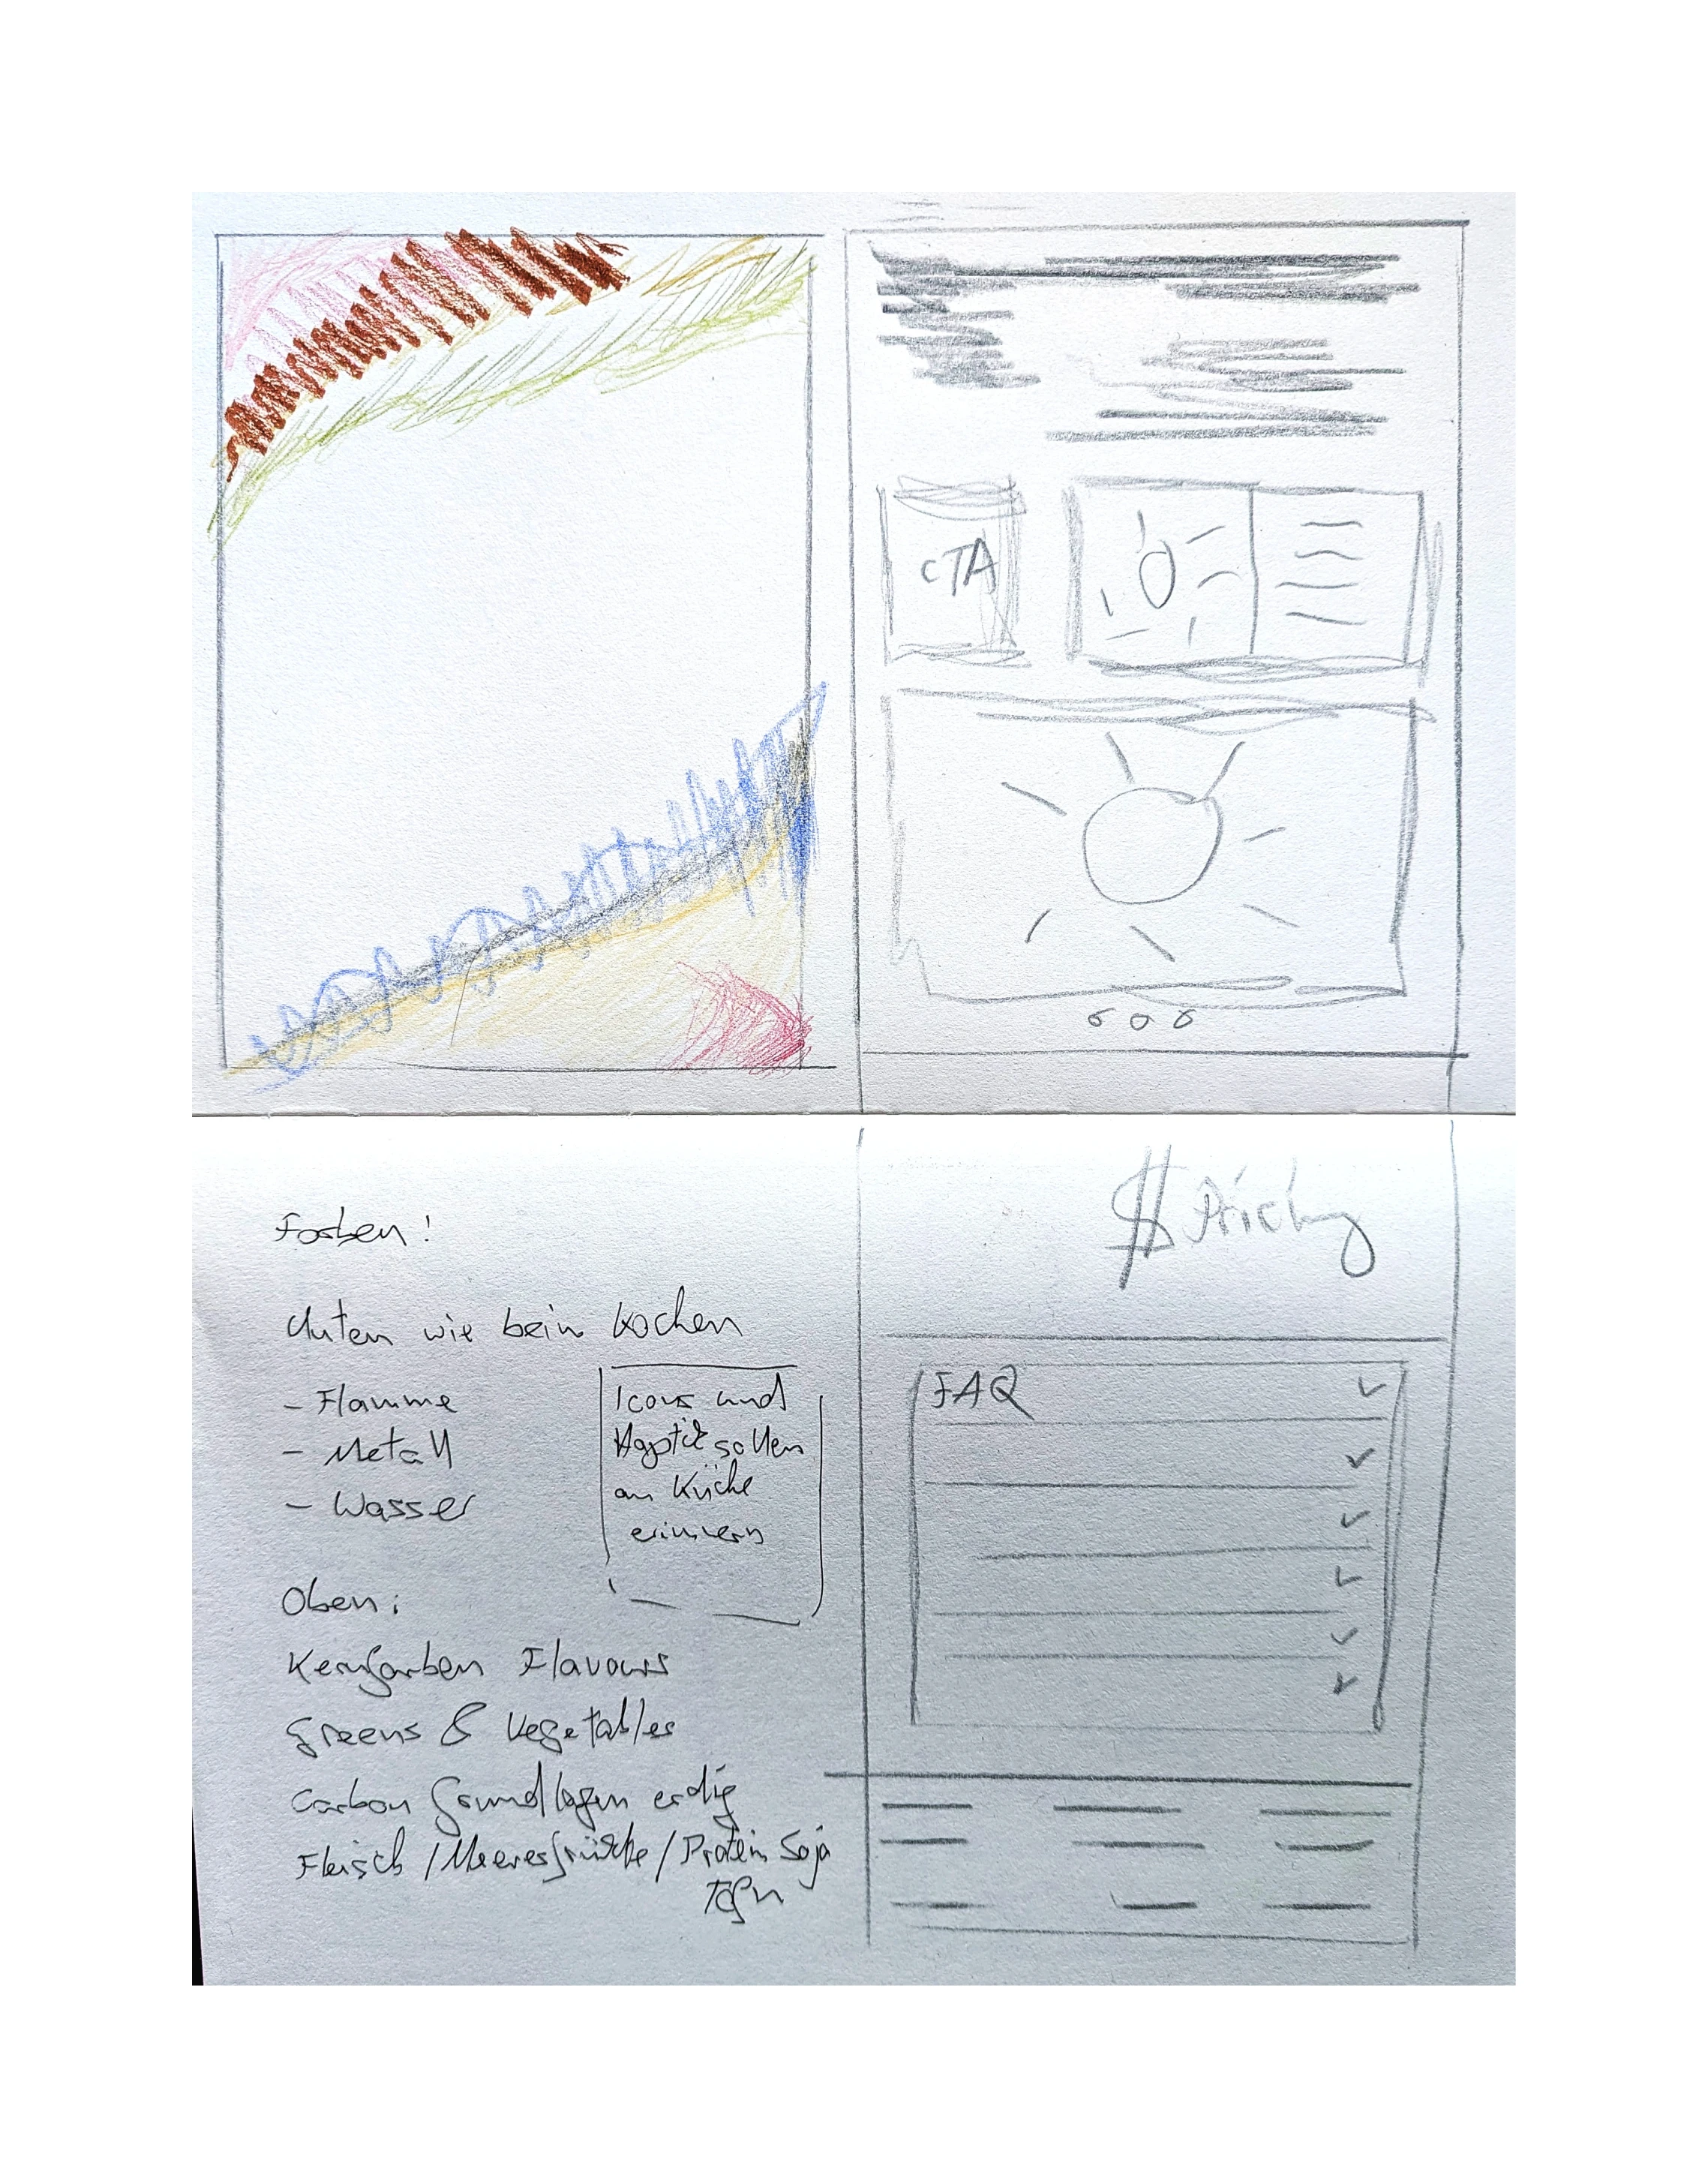 CTA
$ Pricing
Farben!
Unten wie beim Kochen
- Flamme
- Metall
- Wasser
Icons und
Haptik sollen
an Küche
erinnern
Oben:
Kernfarben Flavours
Greens & Vegetables
Carbon Grundlagen erdig
Fleisch / Meeresfrüchte / Protein Soja
Tofu
FAQ